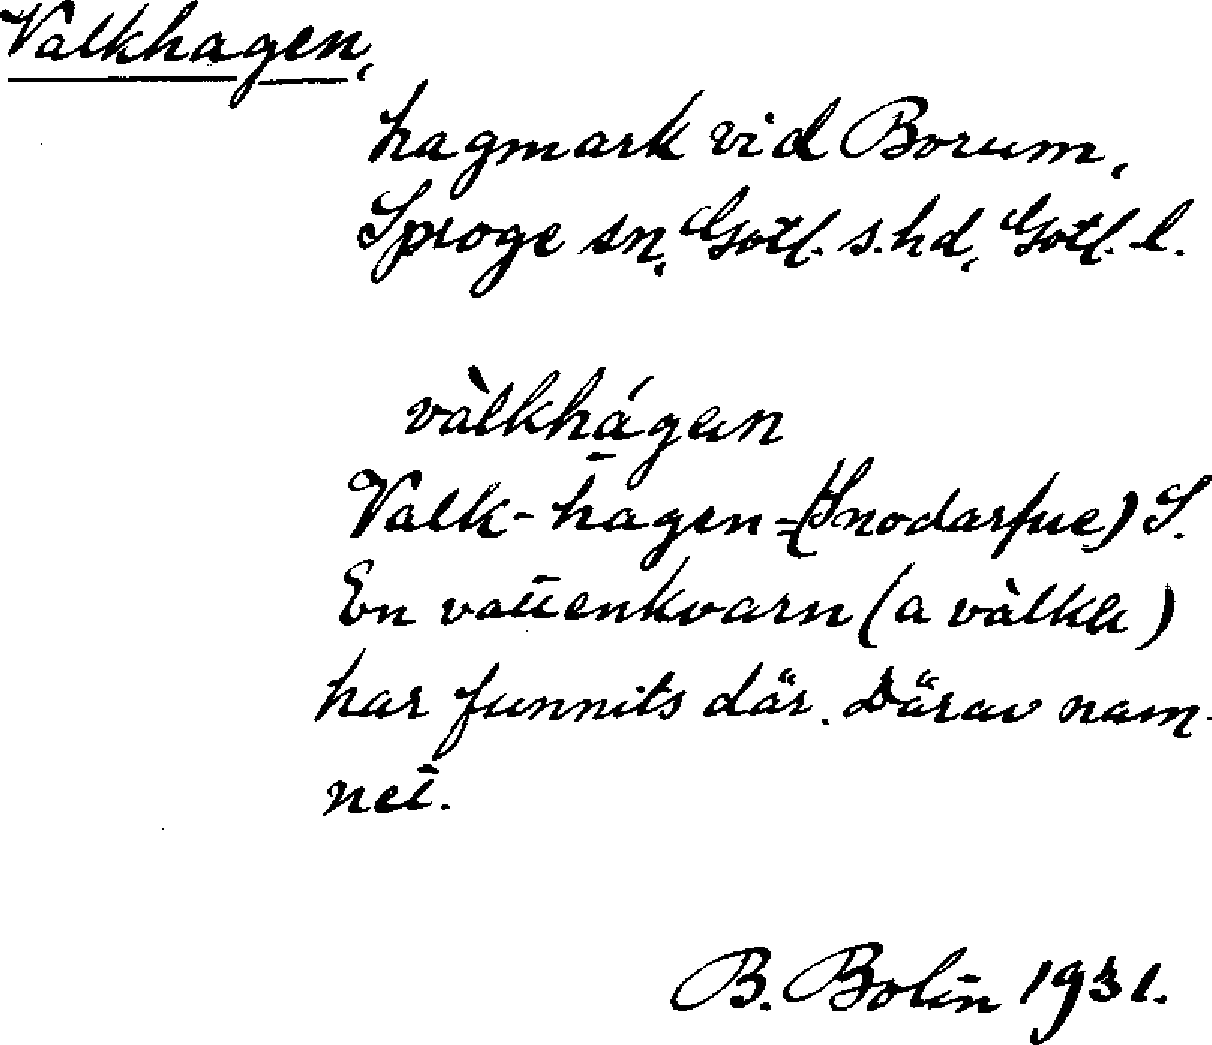 Valkhagen,
hagmark vid Borum,
Sproge sn, Gotl. s. hd, Gotl. l.
vàlkhá̱gæn
Valk-hagen = (Snodarfue) S.
En vattenkvarn (a vàlkæ)
har funnits där. Därav nam-
net.
B. Bolin 1931.